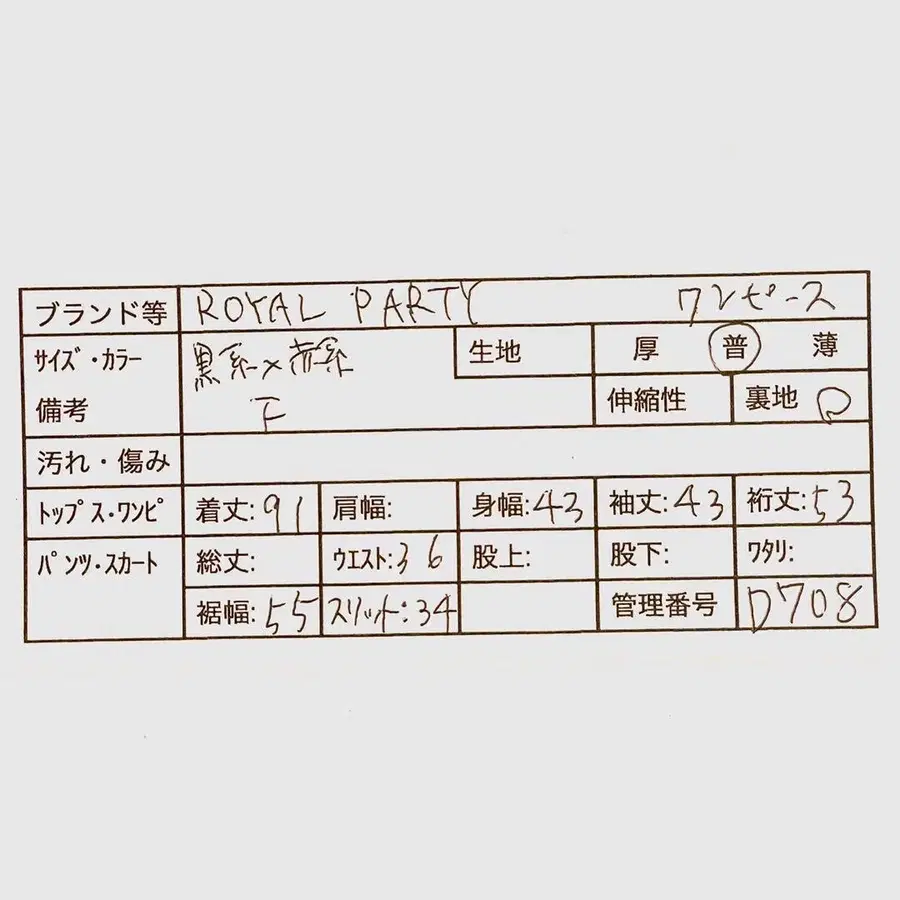 ブランド等 ROYAL PARTY ワンピース
サイズ・カラー 黒系×赤系 生地 厚 普 薄
備考 F 伸縮性 裏地
汚れ・傷み
トップス・ワンピ 着丈:91 肩幅: 身幅:43 袖丈:43 裄丈:53
パンツ・スカート 総丈: ウエスト:36 股上: 股下: ワタリ:
裾幅:55 スリット:34 管理番号 D708